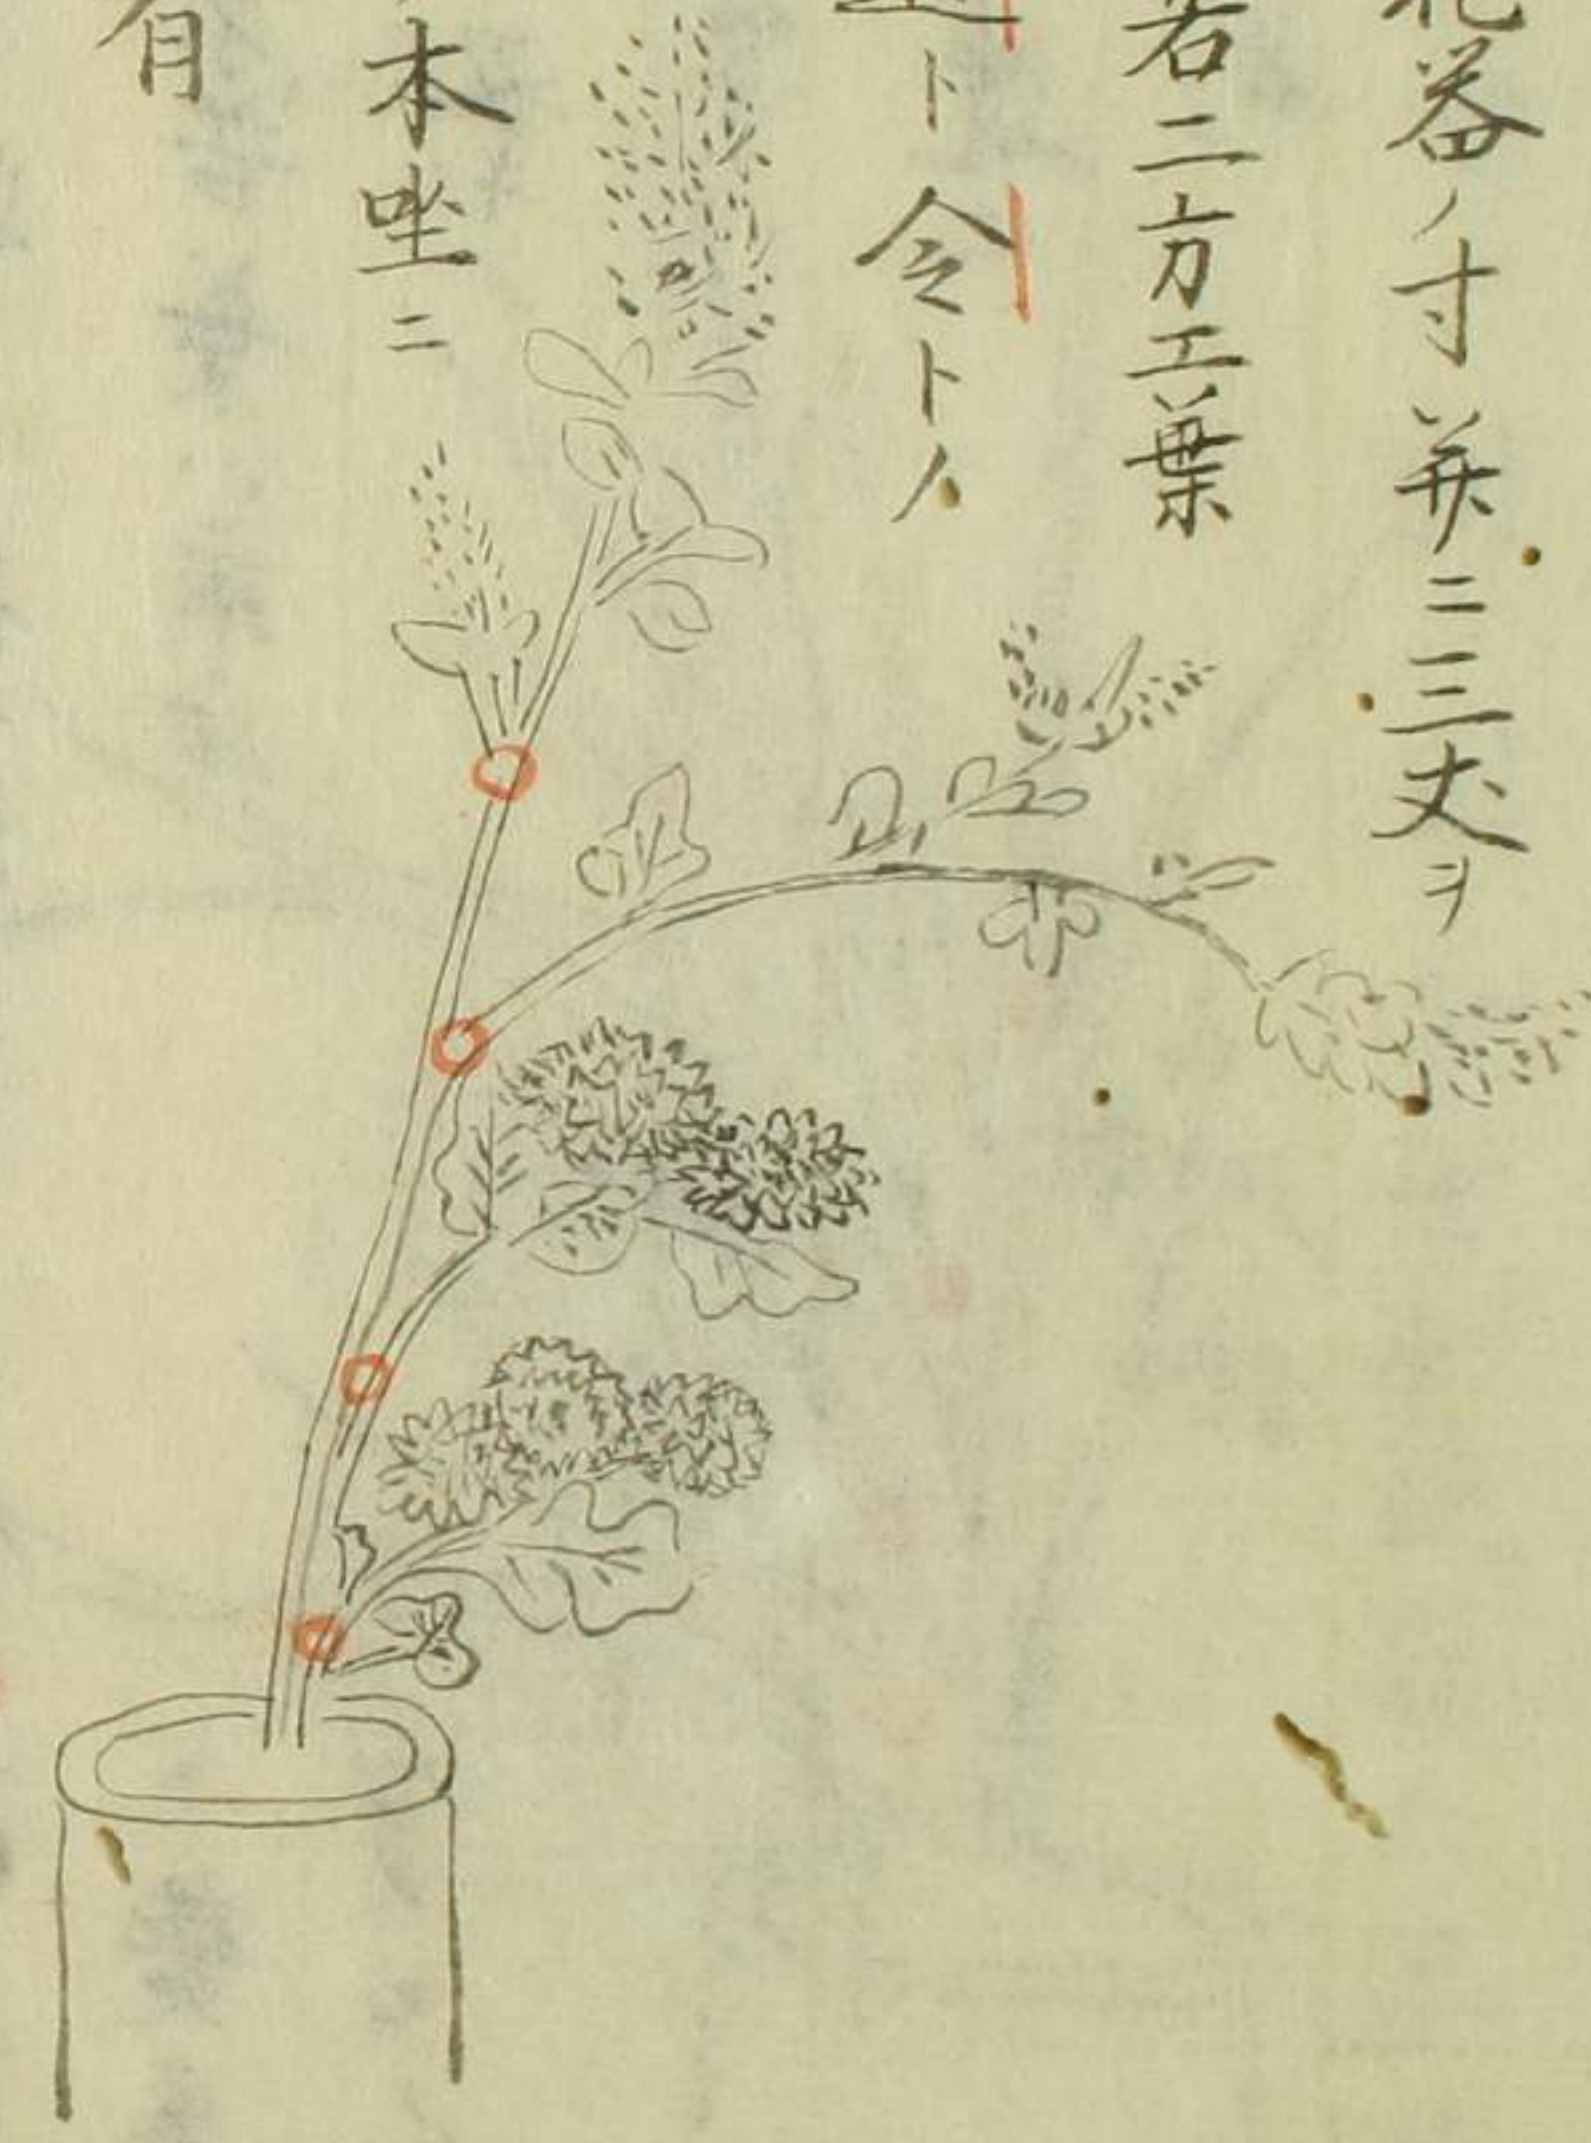 花器ノ寸并ニ三丈ヲ
若二方エ葉
ト令トノ
本坐ニ
有